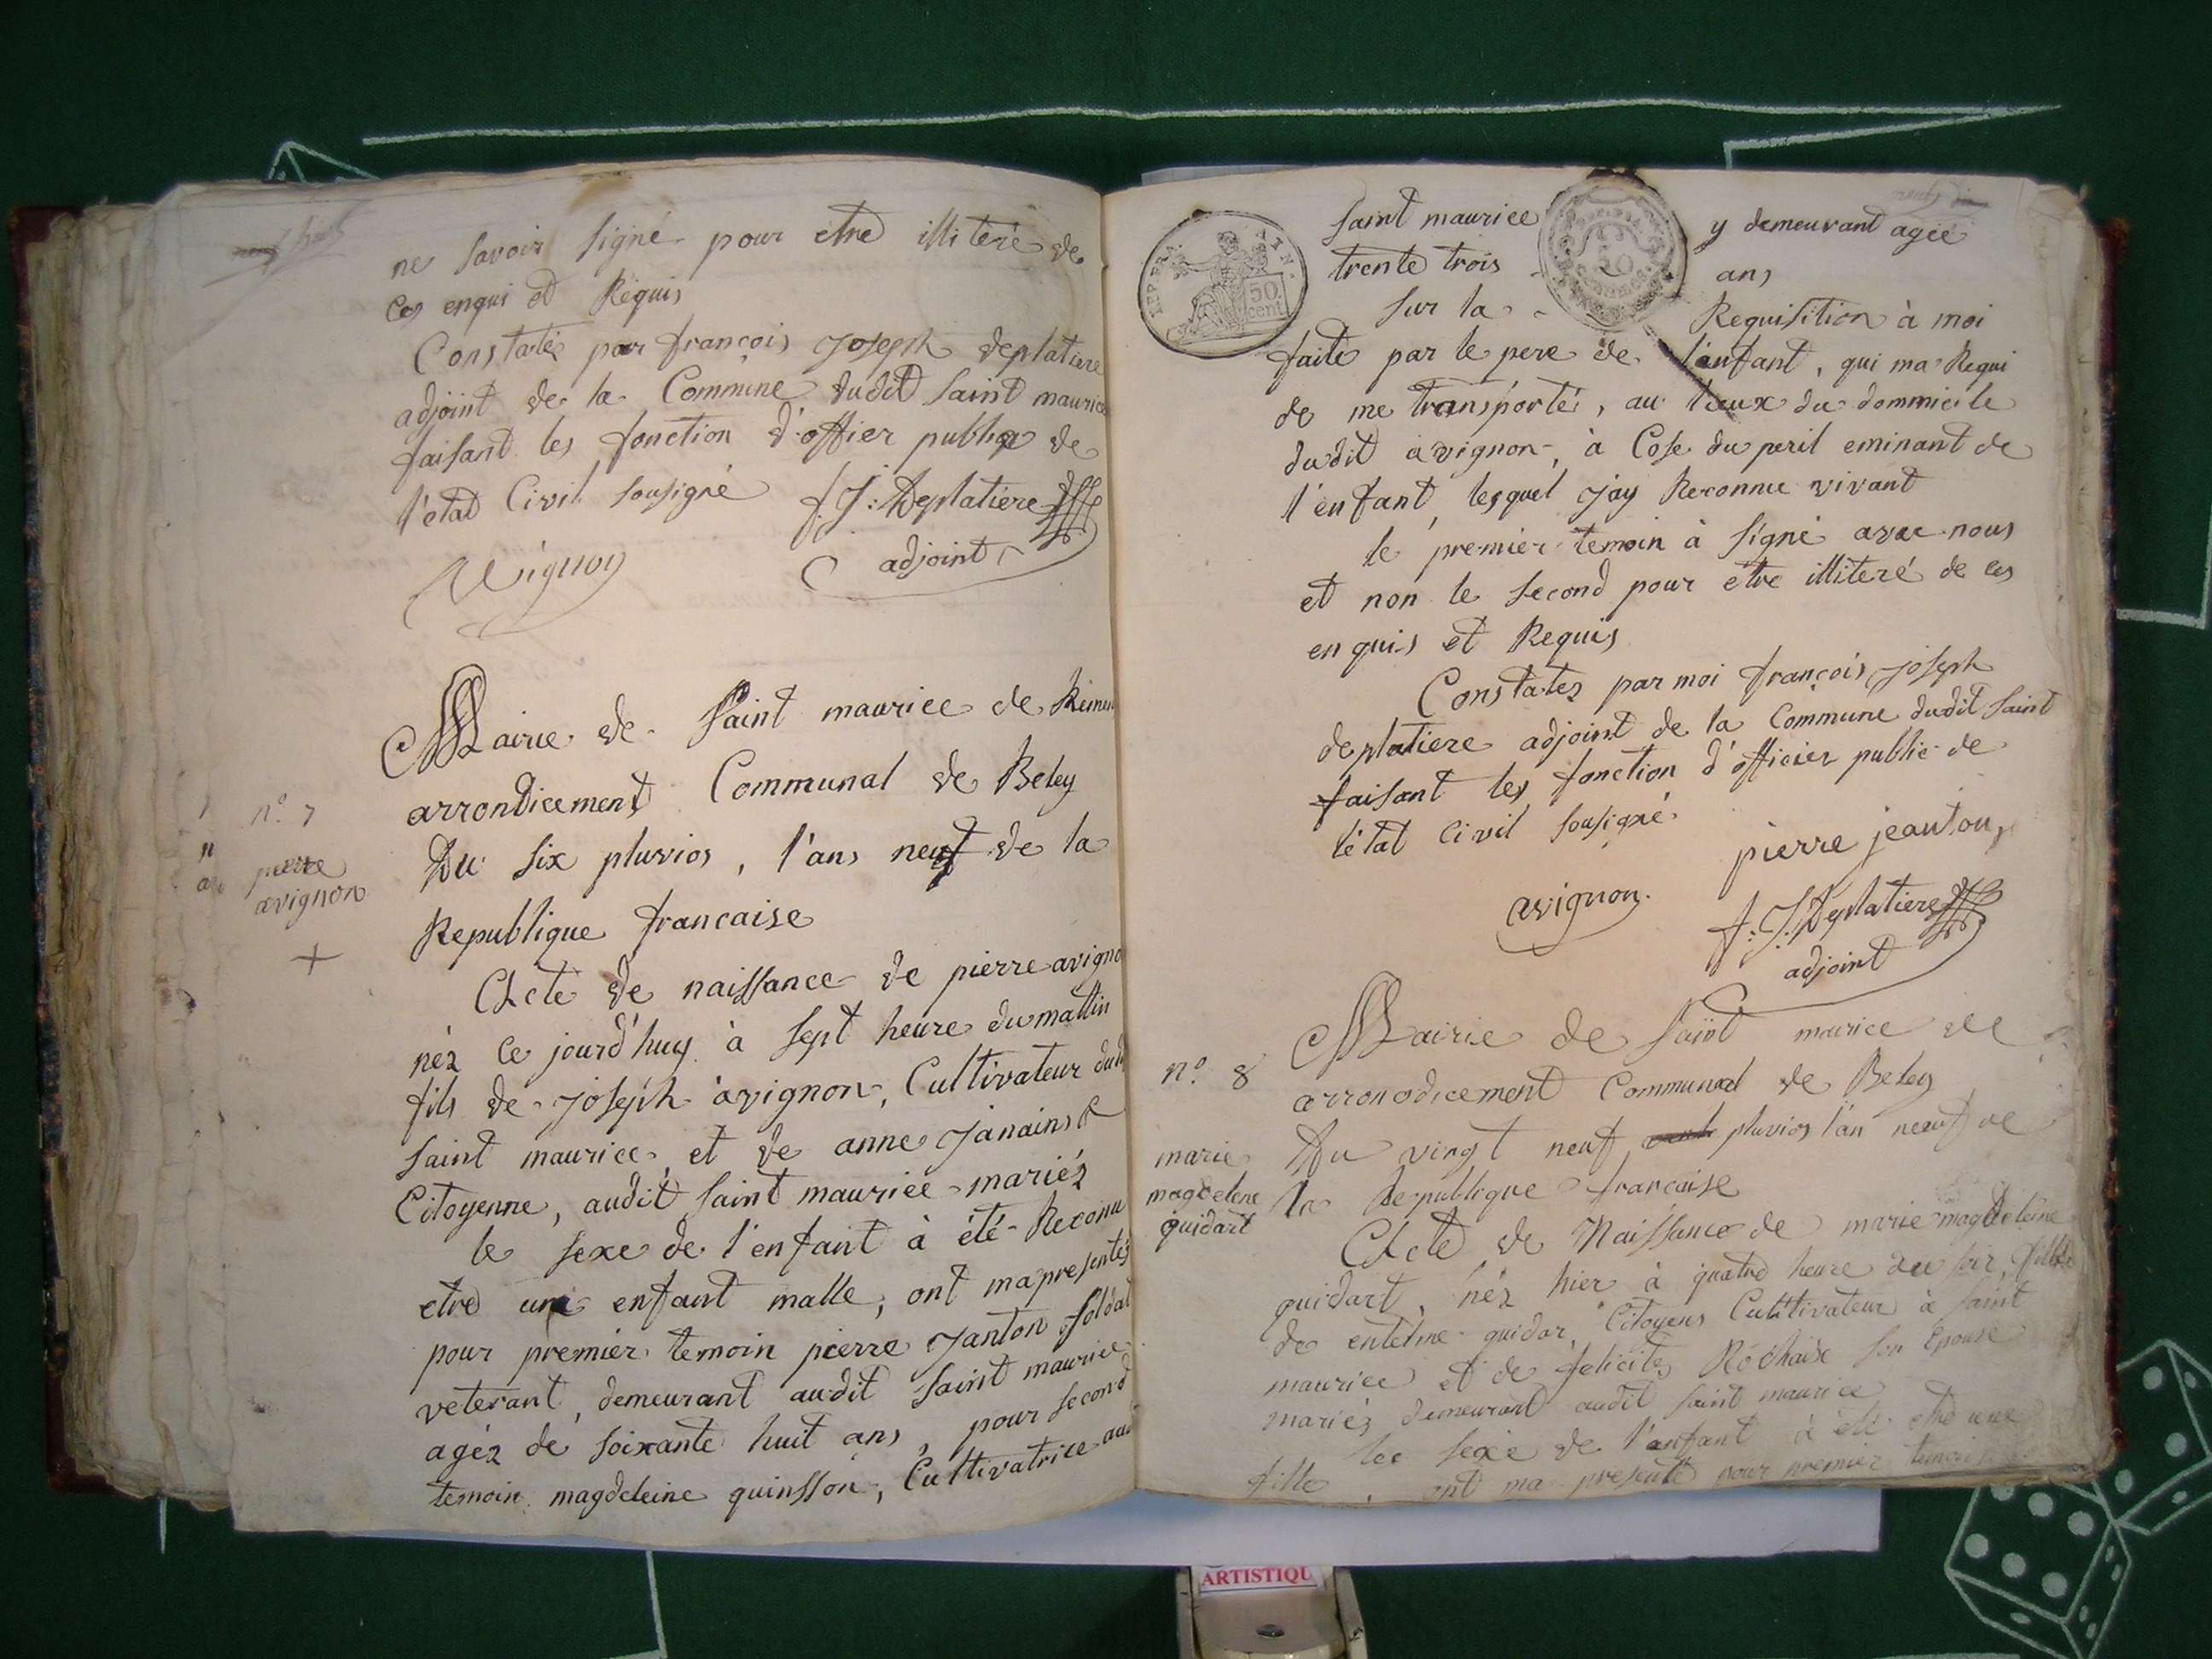 ne savoir signé pour etre illiteré de
ces enqui et Requis
Constatés par françois joseph deplatiere
adjoint de la Commune dudit saint maurice
faisant les fonction d'offier publique de
l'état Civil sousigné f. J: Deplatiere
avignon adjoint
Mairie de saint maurice de Rémen
arrondicement Communal de Beley
n.o 7
Du six pluvios, l'ans neuf de la
pierre
avignon
Republique francaise
Acte de naissance de pierre avigno
néz ce jourd'huy à sept heure du mattin
fils de joseph avignon, Cultivateur dud
saint maurice et de anne janains
Citoyenne, audit saint maurice mariés
le sexe de l'enfant à été Reconu
etre une enfant malle, ont ma presentés
pour premier temoin pierre janton soldat
veterant, demeurant audit saint maurice
agéz de soixante huit ans, pour second
temoin magdeleine quinsson, Cultivatrice aud
saint maurice y demeurant agée
trente trois ans
REP. FRA.
50
cent
sur la Requisition à moi
faite par le pere de l'enfant, qui ma Requi
de me transporté, au lieux du dommicile
dudit avignon, à Cose du peril eminant de
l'enfant, lesquel jay Reconnu vivant
le premier temoin à signé avec nous
et non le second pour etre illiteré de ces
enquis et Requis
Constatez par moi françois joseph
deplatiere adjoint de la Commune dudit saint
faisant les fonction d'officier public de
l'état Civil sousigné
pierre jeanton
avignon.
f: J: Deplatiere
adjoint
Mairie de saint maurice de
n.o 8
arronodicement Communal de Beley
Du vingt neuf pluvios l'an neuf de
marie
magdelene
guidart
la Republique francaise
Acte de Naissance de marie magdeleine
guidart, néz hier à quatre heure du soir, fille
de entelme guidar, Citoyens Cultivateur à saint
maurice et de felicites Rochaise son Epouse
mariés demeurant audit saint maurice
lee sexe de l'anfant à été etre une
fille, ont ma presenté pour premier temoin
ARTISTIQU